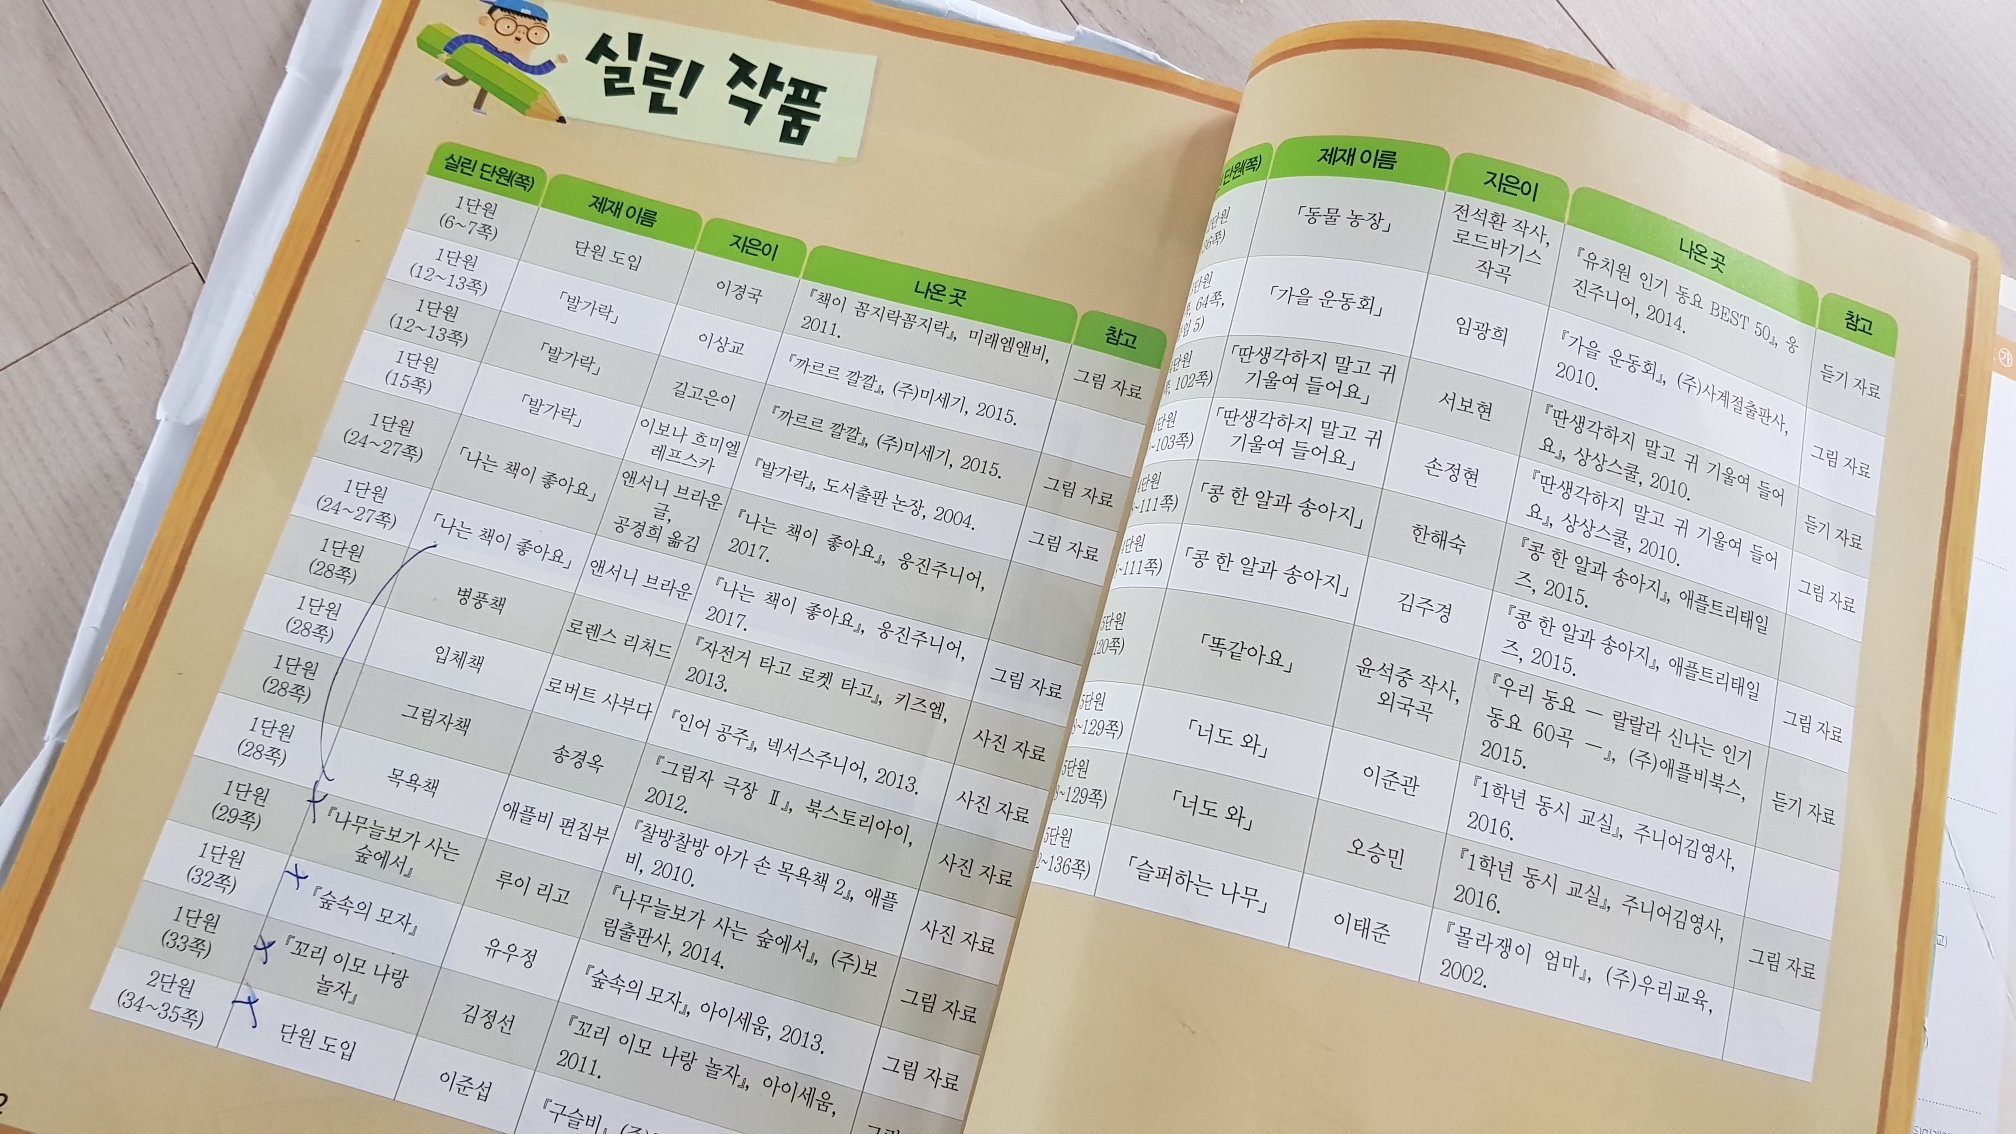 실린 작품
실린 단원(쪽) 제재 이름 지은이 나온 곳 참고
1단원
(6~7쪽)
단원 도입
이경국
『책이 꼼지락꼼지락』, 미래엠앤비,
2011.
그림 자료
1단원
(12~13쪽)
「발가락」
이상교
『까르르 깔깔』, (주)미세기, 2015.
1단원
(12~13쪽)
「발가락」
길고은이
『까르르 깔깔』, (주)미세기, 2015.
그림 자료
1단원
(15쪽)
「발가락」
이보나 흐미엘
레프스카
『발가락』, 도서출판 논장, 2004.
그림 자료
1단원
(24~27쪽)
「나는 책이 좋아요」
앤서니 브라운
글,
공경희 옮김
『나는 책이 좋아요』, 웅진주니어,
2017.
1단원
(24~27쪽)
「나는 책이 좋아요」
앤서니 브라운
『나는 책이 좋아요』, 웅진주니어,
2017.
그림 자료
1단원
(28쪽)
병풍책
로렌스 리처드
『자전거 타고 로켓 타고』, 키즈엠,
2013.
사진 자료
1단원
(28쪽)
입체책
로버트 사부다
『인어 공주』, 넥서스주니어, 2013.
사진 자료
1단원
(28쪽)
그림자책
송경옥
『그림자 극장 Ⅱ』, 북스토리아이,
2012.
사진 자료
1단원
(28쪽)
목욕책
애플비 편집부
『찰방찰방 아가 손 목욕책 2』, 애플
비, 2010.
사진 자료
1단원
(29쪽)
『나무늘보가 사는
숲에서』
루이 리고
『나무늘보가 사는 숲에서』, (주)보
림출판사, 2014.
그림 자료
1단원
(32쪽)
『숲속의 모자』
유우정
『숲속의 모자』, 아이세움, 2013.
그림 자료
1단원
(33쪽)
『꼬리 이모 나랑
놀자』
김정선
『꼬리 이모 나랑 놀자』, 아이세움,
2011.
2단원
(34~35쪽)
단원 도입
이준섭
『구슬비』,
제재 이름 지은이 나온 곳 참고
「동물 농장」
전석환 작사,
로드바기스
작곡
『유치원 인기 동요 BEST 50』, 웅
진주니어, 2014.
듣기 자료
64쪽,
「가을 운동회」
임광희
『가을 운동회』, (주)사계절출판사,
2010.
그림 자료
102쪽)
「딴생각하지 말고 귀
기울여 들어요」
서보현
『딴생각하지 말고 귀 기울여 들어
요』, 상상스쿨, 2010.
듣기 자료
~103쪽)
「딴생각하지 말고 귀
기울여 들어요」
손정현
『딴생각하지 말고 귀 기울여 들어
요』, 상상스쿨, 2010.
그림 자료
~111쪽)
「콩 한 알과 송아지」
한해숙
『콩 한 알과 송아지』, 애플트리태일
즈, 2015.
~111쪽)
「콩 한 알과 송아지」
김주경
『콩 한 알과 송아지』, 애플트리태일
즈, 2015.
그림 자료
「똑같아요」
윤석중 작사,
외국곡
『우리 동요 — 랄랄라 신나는 인기
동요 60곡 —』, (주)애플비북스,
2015.
듣기 자료
5단원
~129쪽)
「너도 와」
이준관
『1학년 동시 교실』, 주니어김영사,
2016.
~129쪽)
「너도 와」
오승민
『1학년 동시 교실』, 주니어김영사,
2016.
그림 자료
5단원
~136쪽)
「슬퍼하는 나무」
이태준
『몰라쟁이 엄마』, (주)우리교육,
2002.